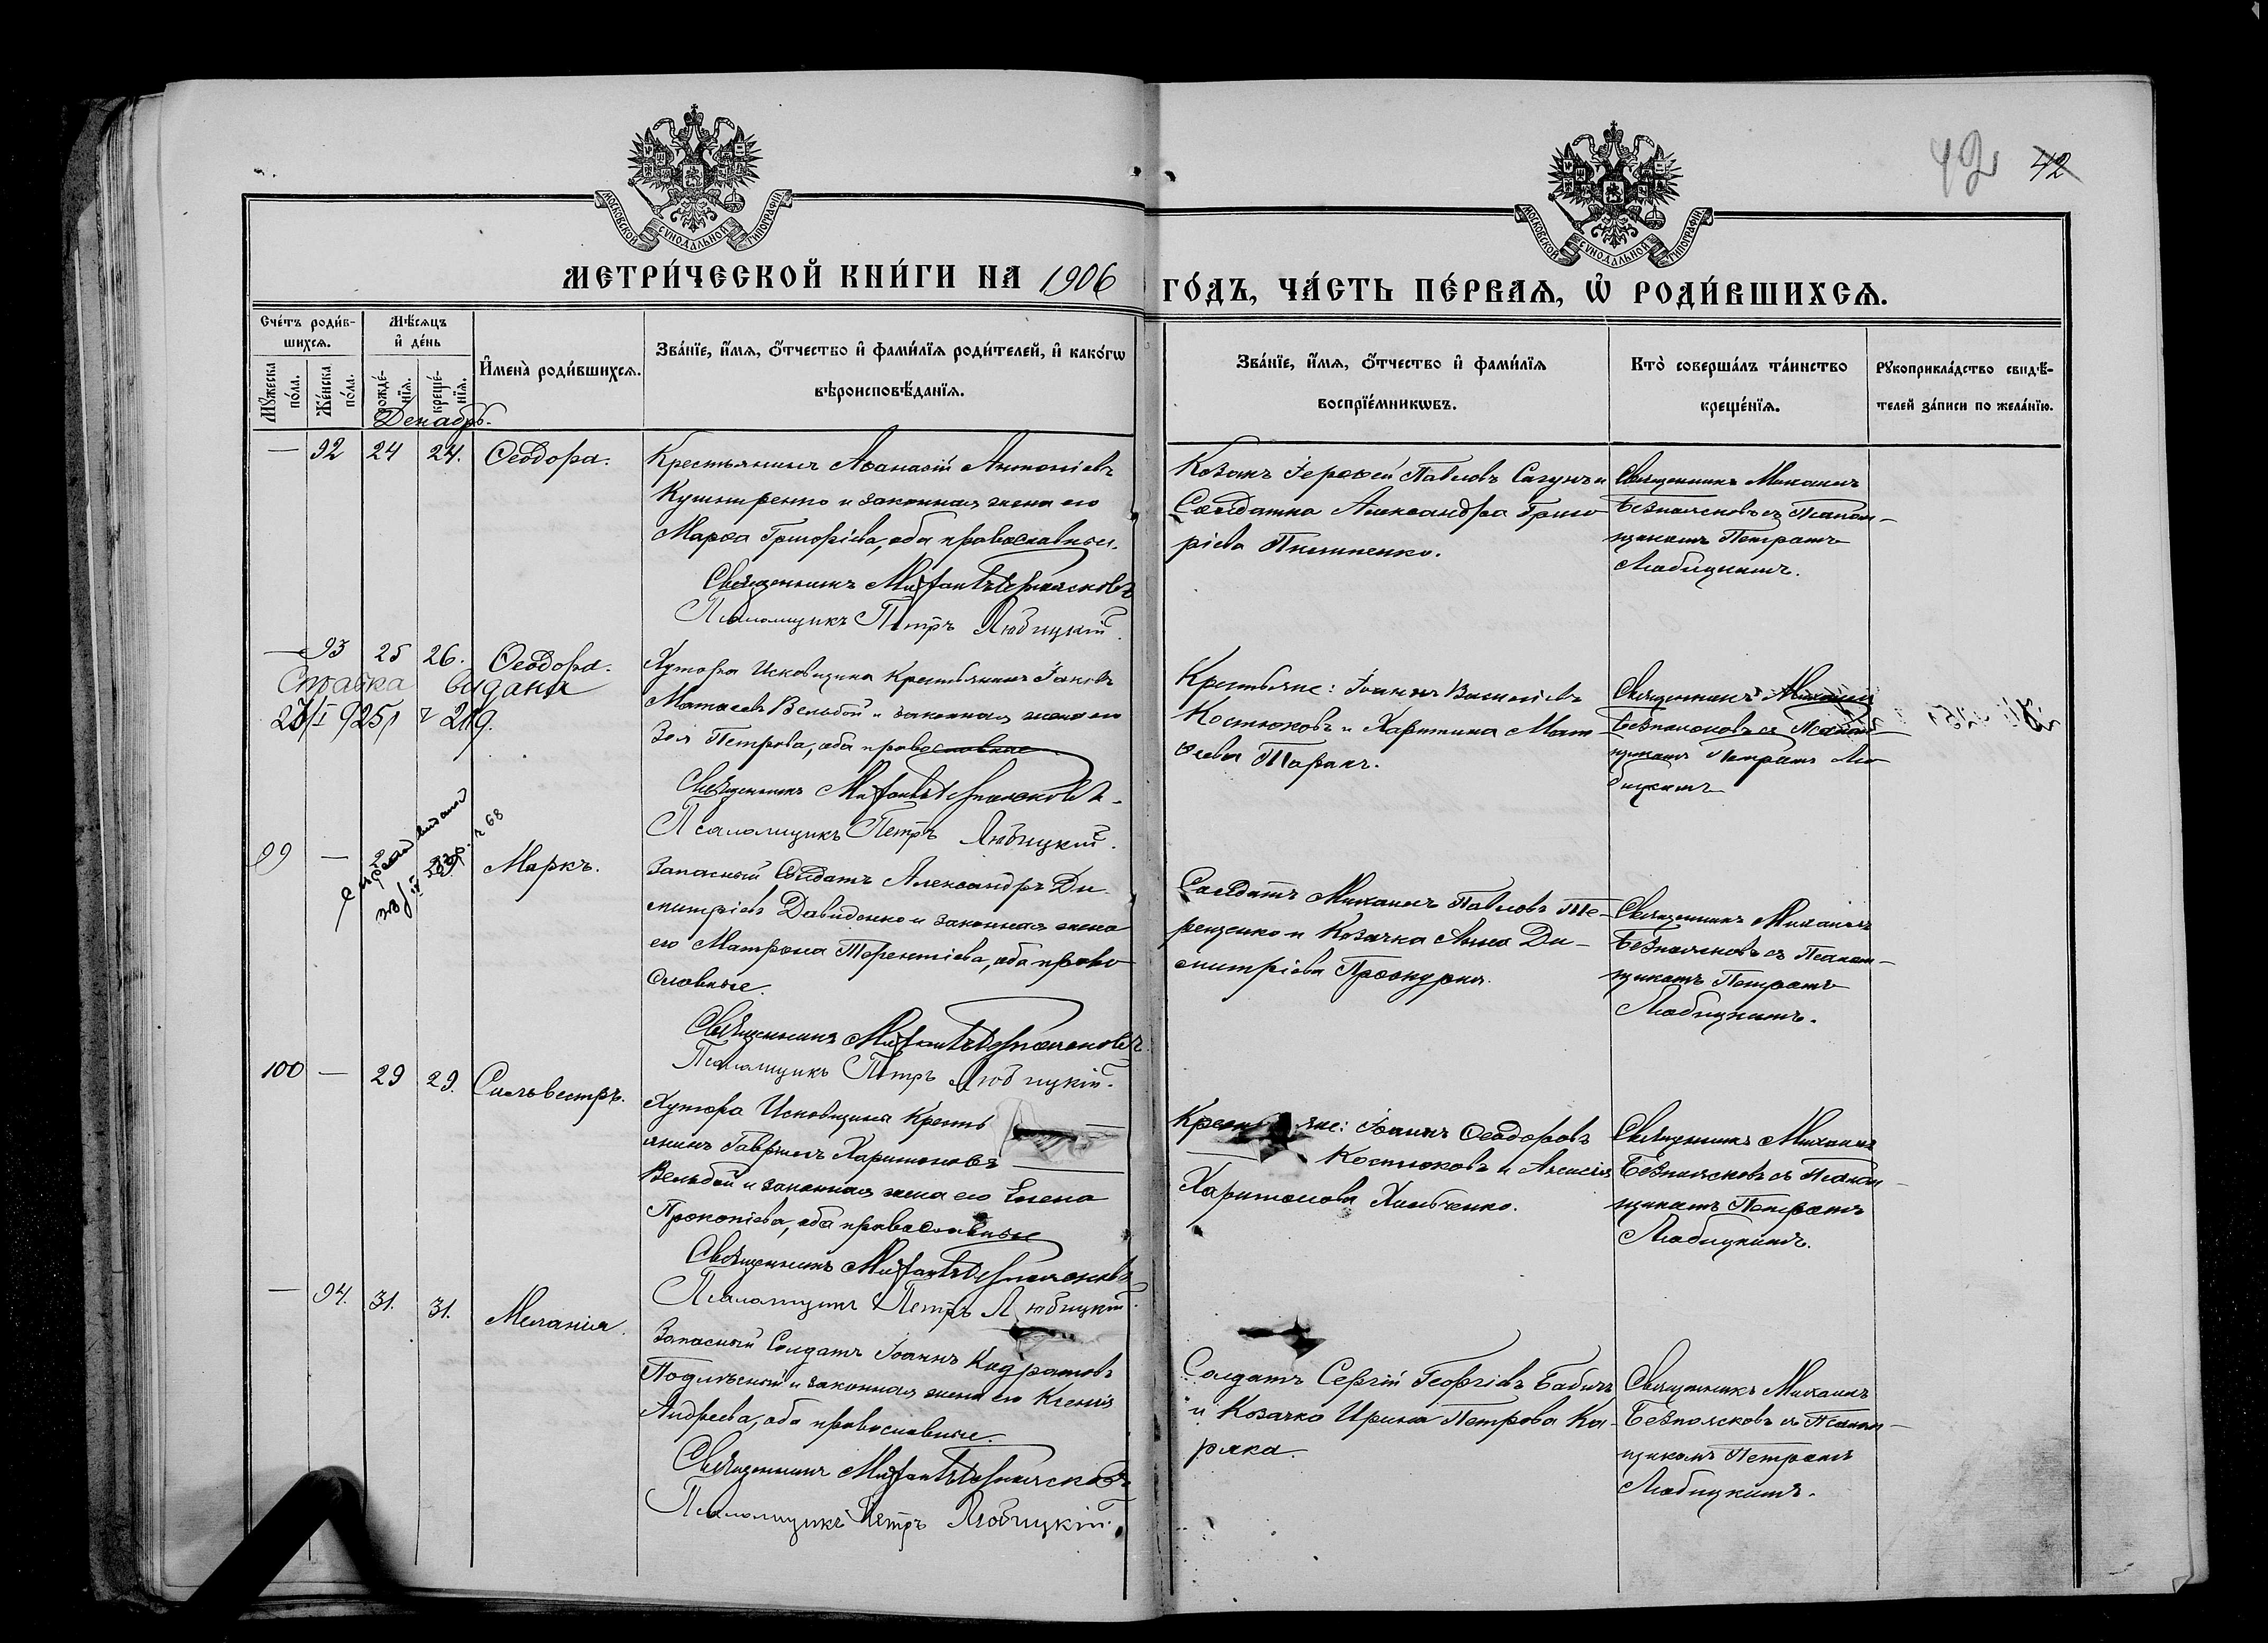 42 42
МОСКОВСКОЙ СѴНОДАЛЬНОЙ ТИПОГРАФІИ
МОСКОВСКОЙ СѴНОДАЛЬНОЙ ТИПОГРАФІИ
МЕТРИ́ЧЕСКОЙ КНИ́ГИ НА 1906
ГО́ДЪ, ЧА́СТЬ ПЕ́РВАЯ, Ѡ҆ РОДИ́ВШИХСЯ.
Сче́тъ роди́в-
шихся.
Мꙋжеска по́ла.
Же́нска по́ла.
Мѣ́сяцъ
и҆ де́нь
рожде́-
нїя.
креще́-
нїя.
И҆мена̀ роди́вшихся.
Зва́нїе, и҆́мя, ѻ҆́тчество и҆ фами́лїя роди́телей, и҆ како́гѡ
вѣроисповѣ́данїя.
Зва́нїе, и҆́мя, ѻ҆́тчество и҆ фами́лїя
воспрїе́мникѡвъ.
Кто̀ соверша́лъ та́инство
креще́нїя.
Рꙋкоприкла́дство свидѣ́-
телей за́писи по жела́нїю.
Декабрь.
— 92 24 24. Ѳеодора.
Крестьянинъ Аѳанасій Антоніевъ
Кушниренко и законная жена его
Марѳа Григоріева, оба православные.
Священникъ Михаилъ Безпоясковъ
Псаломщикъ Петръ Любицкій.
Козакъ Іероѳей Павловъ Сагунъ и
Солдатка Александра Григо
ріева Пилипенко.
Священникъ Михаилъ
Безпоясковъ съ Псалом-
щикомъ Петромъ
Любицкимъ.
— 93 25 26. Ѳеодора.
Справка видана
925 г 219.
Хутора Исковщина Крестьянинъ Іаковъ
Матѳеевъ Вельбой и законная жена его
Зоя Петрова, оба православные
Священникъ Михаилъ Безпоясковъ.
Псаломщикъ Петръ Любицкій.
Крестьяне: Іоаннъ Василіевъ
Костюковъ и Харитина Мат
ѳеева Таранъ.
Священникъ Михаилъ
Безпоясковъ съ Псалом
щикомъ Петромъ Лю
бицкимъ
99 — Маркъ.
68
Запасный Солдатъ Александръ Ди
митріевъ Давиденко и законная жена
его Матрона Терентіева, оба право
славные.
Священникъ Михаилъ Безпоясковъ.
Псаломщикъ Петръ Любицкій.
Солдатъ Михаилъ Павловъ Те-
рещенко и Козачка Анна Ди-
митріева Проскурня.
Священникъ Михаилъ
Безпоясковъ съ Псалом-
щикомъ Петромъ
Любицкимъ.
100 — 29 29. Сильвестръ.
Хутора Исковщина Кресть
янинъ Гавріилъ Харитоновъ
Вельбой и законная жена его Елена
Прокопіева, оба православные
Священникъ Михаилъ Безпоясковъ
Псаломщикъ Петръ Любицкій.
Крестьяне: Іоаннъ Ѳеодоровъ
Костюковъ и
Харитонова Хильченко.
Священникъ Михаилъ
Безпоясковъ съ Псалом-
щикомъ Петромъ
Любицкимъ.
— 94. 31. 31. Меланія.
Запасный Солдатъ Іоаннъ Кодратовъ
и законная жена его Ксенія
Андреева, оба православные.
Священникъ Михаилъ Безпоясковъ
Псаломщикъ Петръ Любицкій.
Солдатъ Сергій Георгіевъ Бабичъ
и Козачка Ирина Петрова Ка-
ряка.
Священникъ Михаилъ
Безпоясковъ съ Псалом-
щикомъ Петромъ
Любицкимъ.